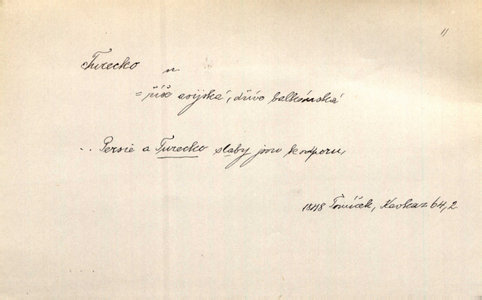 11
Turecko n
= říše asijská, dříve balkánská
.. Persie a Turecko slaby jsou k odporu,
1848 Tomíček, Kavkaz 64, 2